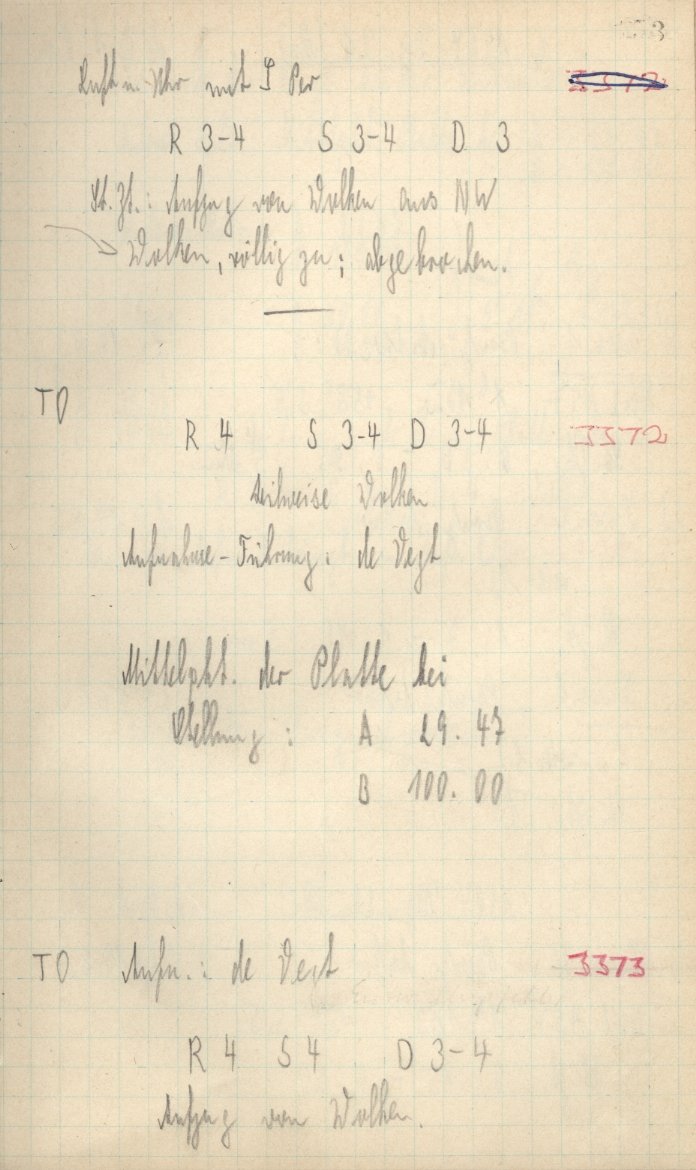 3
Luft u. Uhr mit S Per 3372
R 3-4 S 3-4 D 3
St. Zt.: Aufzug von Wolken aus NW
Wolken, völlig zu; abgebrochen.
TO
R 4 S 3-4 D 3-4 3372
teilweise Wolken
Aufnahme-Führung: de Vegt
Mittelpkt. der Platte bei
Stellung: A 29.47
B 100.00
TO Aufn.: de Vegt 3373
R 4 S 4 D 3-4
Aufzug von Wolken.